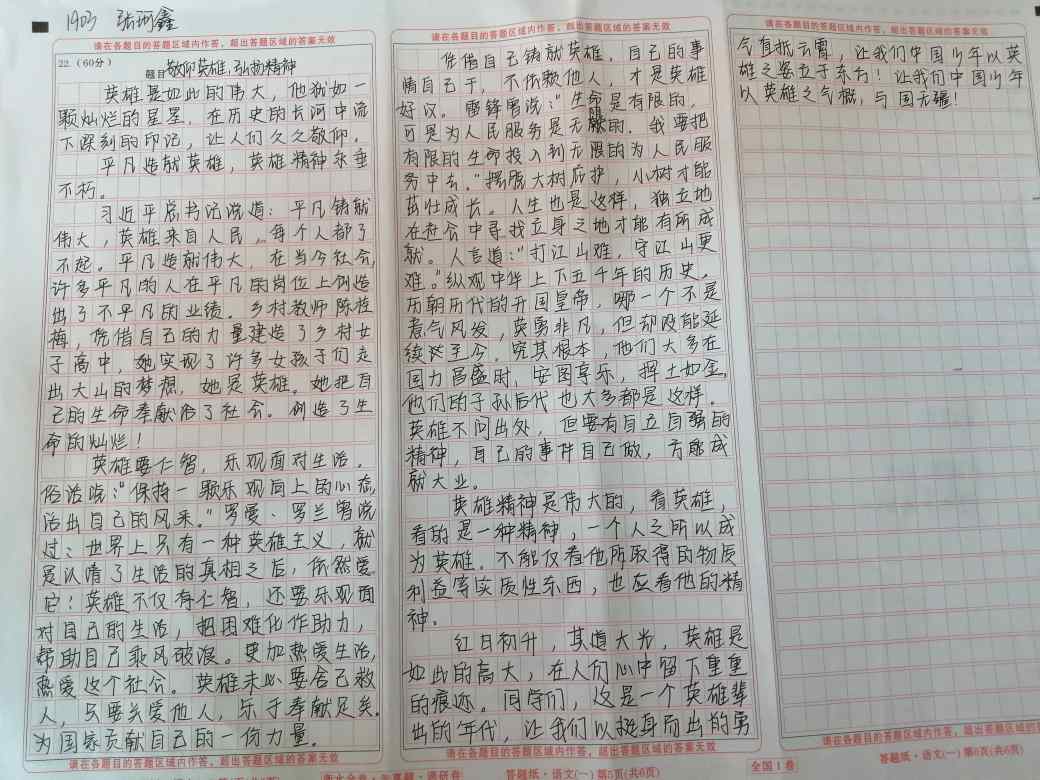 1903 张珂鑫
请在各题目的答题区域内作答，超出答题区域的答案无效
22.（60分）
题目 敬仰英雄，弘扬精神
英雄是如此的伟大，他犹如一
颗灿烂的星星，在历史的长河中流
下深刻的印记，让人们久久敬仰。
平凡造就英雄，英雄精神永垂
不朽。
习近平总书记说道：平凡铸就
伟大，英雄来自人民，每个人都了
不起。平凡造就伟大，在当今社会，
许多平凡的人在平凡的岗位上创造
出了不平凡的业绩。乡村教师陈桂
梅，凭借自己的力量建造了乡村女
子高中，她实现了许多女孩子们走
出大山的梦想，她是英雄。她把自
己的生命奉献给了社会。创造了生
命的灿烂！
英雄要仁智，乐观面对生活。
俗话说：“保持一颗乐观向上的心态，
活出自己的风采。”罗曼、罗兰曾说
过：世界上只有一种英雄主义，就
是认清了生活的真相之后，依然爱
它！英雄不仅有仁智，还要乐观面
对自己的生活，把困难化作助力，
帮助自己乘风破浪。更加热爱生活，
热爱这个社会。英雄未必要舍己救
人，只要关爱他人，乐于奉献足矣。
为国家贡献自己的一份力量。
请在各题目的答题区域内作答，超出答题区域的答案无效
请在各题目的答题区域内作答，超出答题区域的答案无效
凭借自己铸就英雄，自己的事
情自己干，不依赖他人，才是英雄
好汉。雷锋曾说：“生命是有限的，
可是为人民服务是无限的。我要把
有限的生命投入到无限的为人民服
务中去。”摆脱大树庇护，小树才能
茁壮成长。人生也是这样，独立地
在社会中寻找立身之地才能有所成
就。人言道：“打江山难，守江山更
难。”纵观中华上下五千年的历史，
历朝历代的开国皇帝，哪一个不是
意气风发，英勇非凡，但却没能延
续至今。究其根本，他们大多在
国力昌盛时，安图享乐，挥土如金，
他们的子孙后代也大多都是这样。
英雄不问出处，但要有自立自强的
精神，自己的事件自己做，方能成
就大业。
英雄精神是伟大的，看英雄，
看的是一种精神，一个人之所以成
为英雄。不能仅看他所取得的物质
利益等实质性东西，也应看他的精
神。
红日初升，其道大光，英雄是
如此的高大，在人们心中留下重重
的痕迹。同学们，这是一个英雄辈
出的年代，让我们以挺身而出的勇
请在各题目的答题区域内作答，超出答题区域的答案无效
答题纸·语文(一) 第5页(共6页)
请在各题目的答题区域内作答，超出答题区域的答案无效
气直抵云霄，让我们中国少年以英
雄之姿立于东方！让我们中国少年
以英雄之气概，与国无疆！
请在各题目的答题区域内作答，超出答题区域的答案无效
全国1卷
答题纸·语文(一) 第6页(共6页)